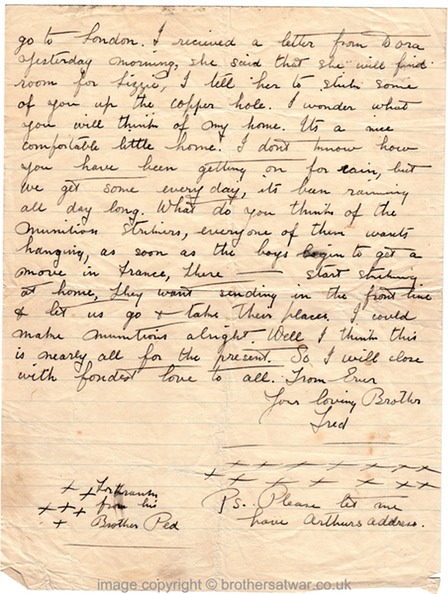 go to London. I recieved a letter from Dora
yesterday morning, she said that she will find
room for Lizzie, I tell her to stick some
of you up the copper hole. I wonder what
you will think of my home. Its a nice
comfortable little home. I dont know how
you have been getting on for rain, but
we get some every day, its been raining
all day long. What do you think of the
munition strikers, everyone of them wants
hanging, as soon as the boys begin to get a
move in France, there — start striking
at home, they want sending in the front line
& let us go & take their places. I could
make munitions alright. Well I think this
is nearly all for the present. So I will close
with fondest love to all. From Ever
Your loving Brother
Fred
+ + + + + + +
+ + + + + + +
Ps. Please let me
have Arthurs address.
+ + For
+ + + from his
+ Brother
image copyright © brothersatwar.co.uk